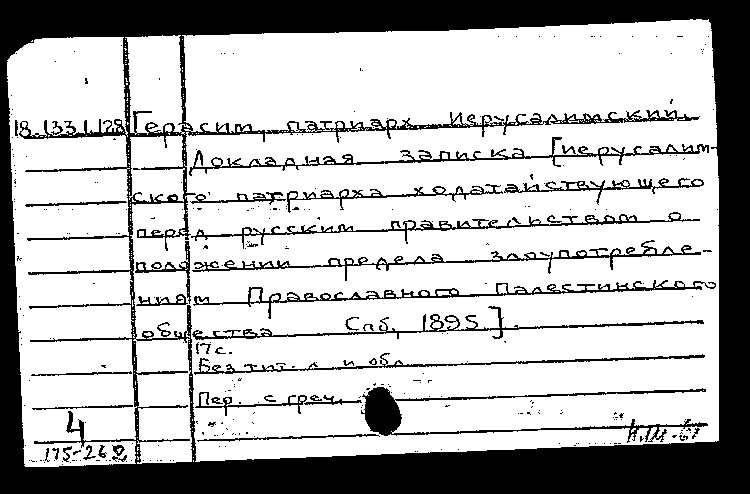 18.133.1.128 Герасим, патриарх Иерусалимский.
Докладная записка [иерусалим-
ского патриарха ходатайствующего
перед русским правительством о
положении предела злоупотребле-
ниям Православного Палестинского
общества Спб, 1895].
17 с.
Без тит. л и обл
Пер. с греч.
4
175-262